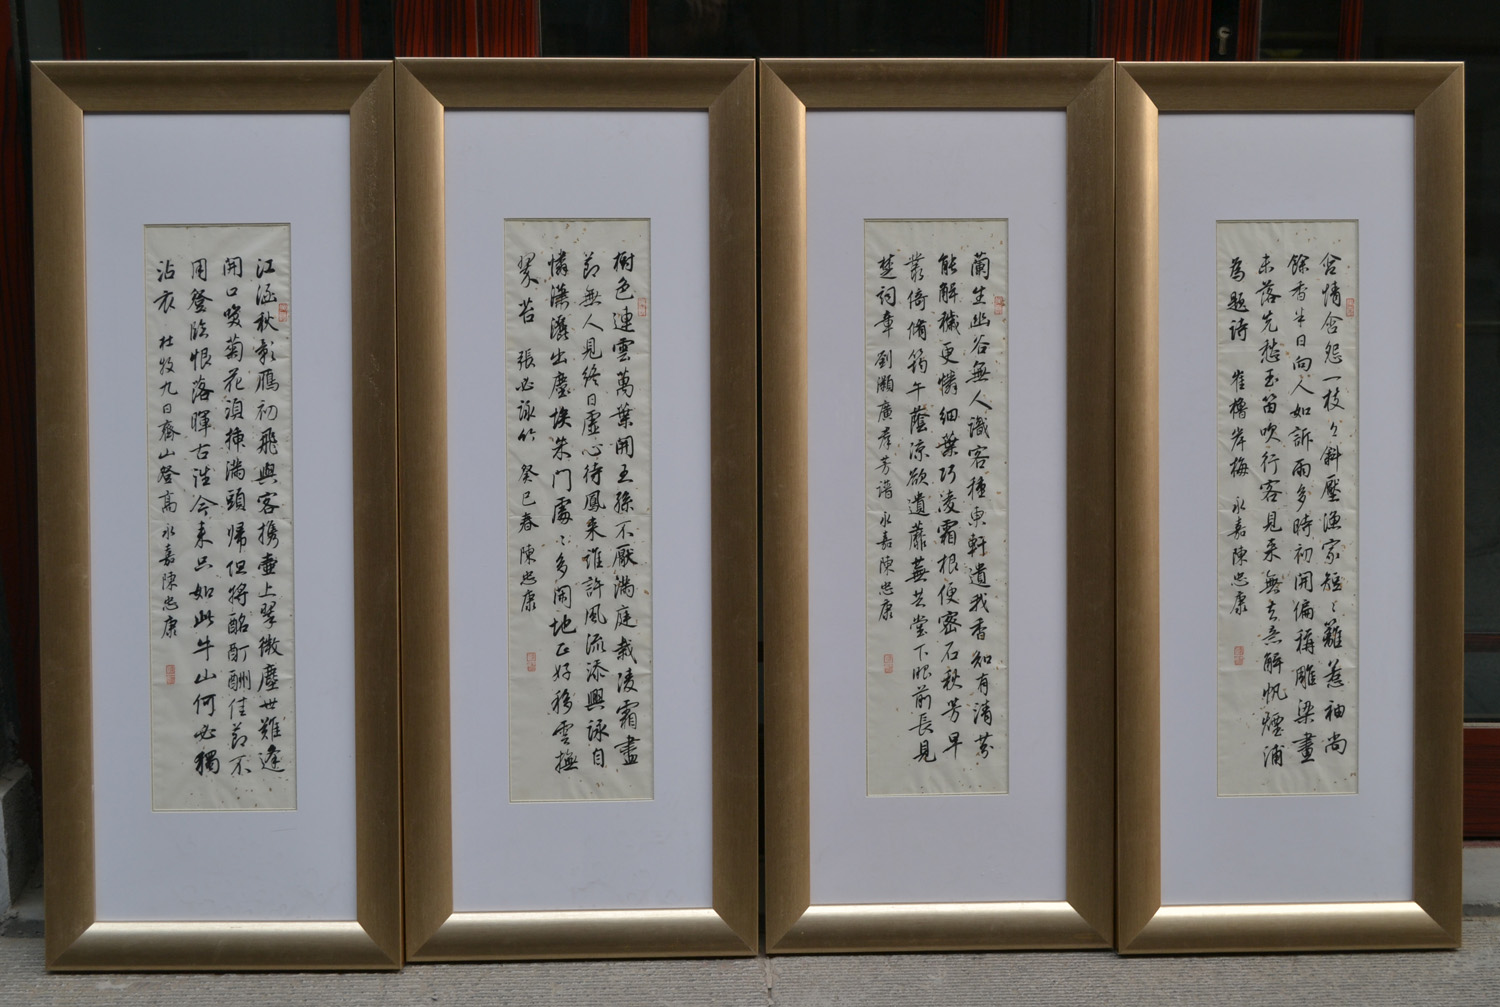 含情含怨一枝々斜壓漁家短々籬惹袖尚
餘香半日向人如訴雨多時初開偏稱雕梁畫
未落先愁玉笛吹行客見來無去意解帆煙浦
為題詩 崔櫓岸梅 永嘉陳忠康
蘭生幽谷無人識客種東軒遺我香知有清芬
能解穢更憐細葉巧凌霜根便密石秋芳早
叢倚脩筠午蔭涼欲遺蘼蕪共堂下眼前長見
楚詞章 劉灝廣羣芳譜 永嘉陳忠康
樹色連雲萬葉開王孫不厭滿庭栽凌霜盡
節無人見終日虛心待鳳來誰許風流添興詠自
憐瀟灑出塵埃朱門處々多閒地正好移雲撫
翠苔 張必詠竹 癸巳春 陳忠康
江涵秋影雁初飛與客攜壺上翠微塵世難逢
開口笑菊花須插滿頭歸但將酩酊酬佳節不
用登臨恨落暉古往今來只如此牛山何必獨
沾衣 杜牧九日齊山登高 永嘉陳忠康